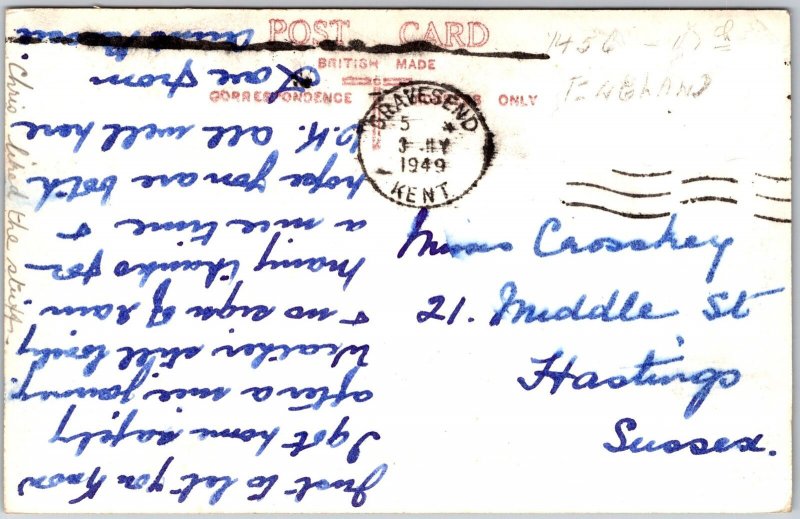 POST CARD
BRITISH MADE
CORRESPONDENCE ADDRESS ONLY
1450 -
ENGLAND
GRAVESEND
5
3 MY
1949
KENT
Miss Crosskey
21. Middle St
Hastings
Sussex.
Just to let you know
I got home safely
after a nice journey.
Weather still lovely
& no sign of rain.
Many thanks for
a nice time &
hope you are both
O.K. all well here
Love from
Chris liked the stuff.